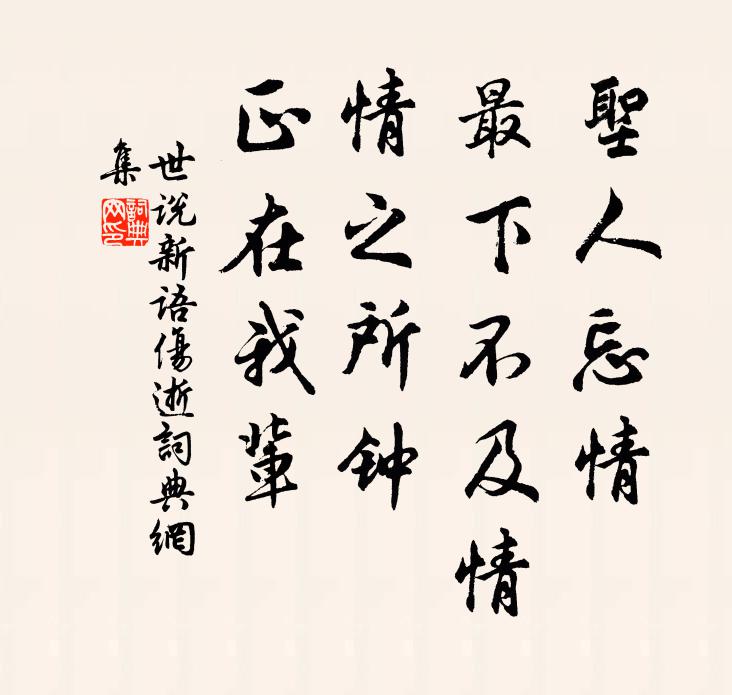 聖人忘情
最下不及情
情之所钟
正在我輩
世说新語傷逝詞典網
集
詞典
网印